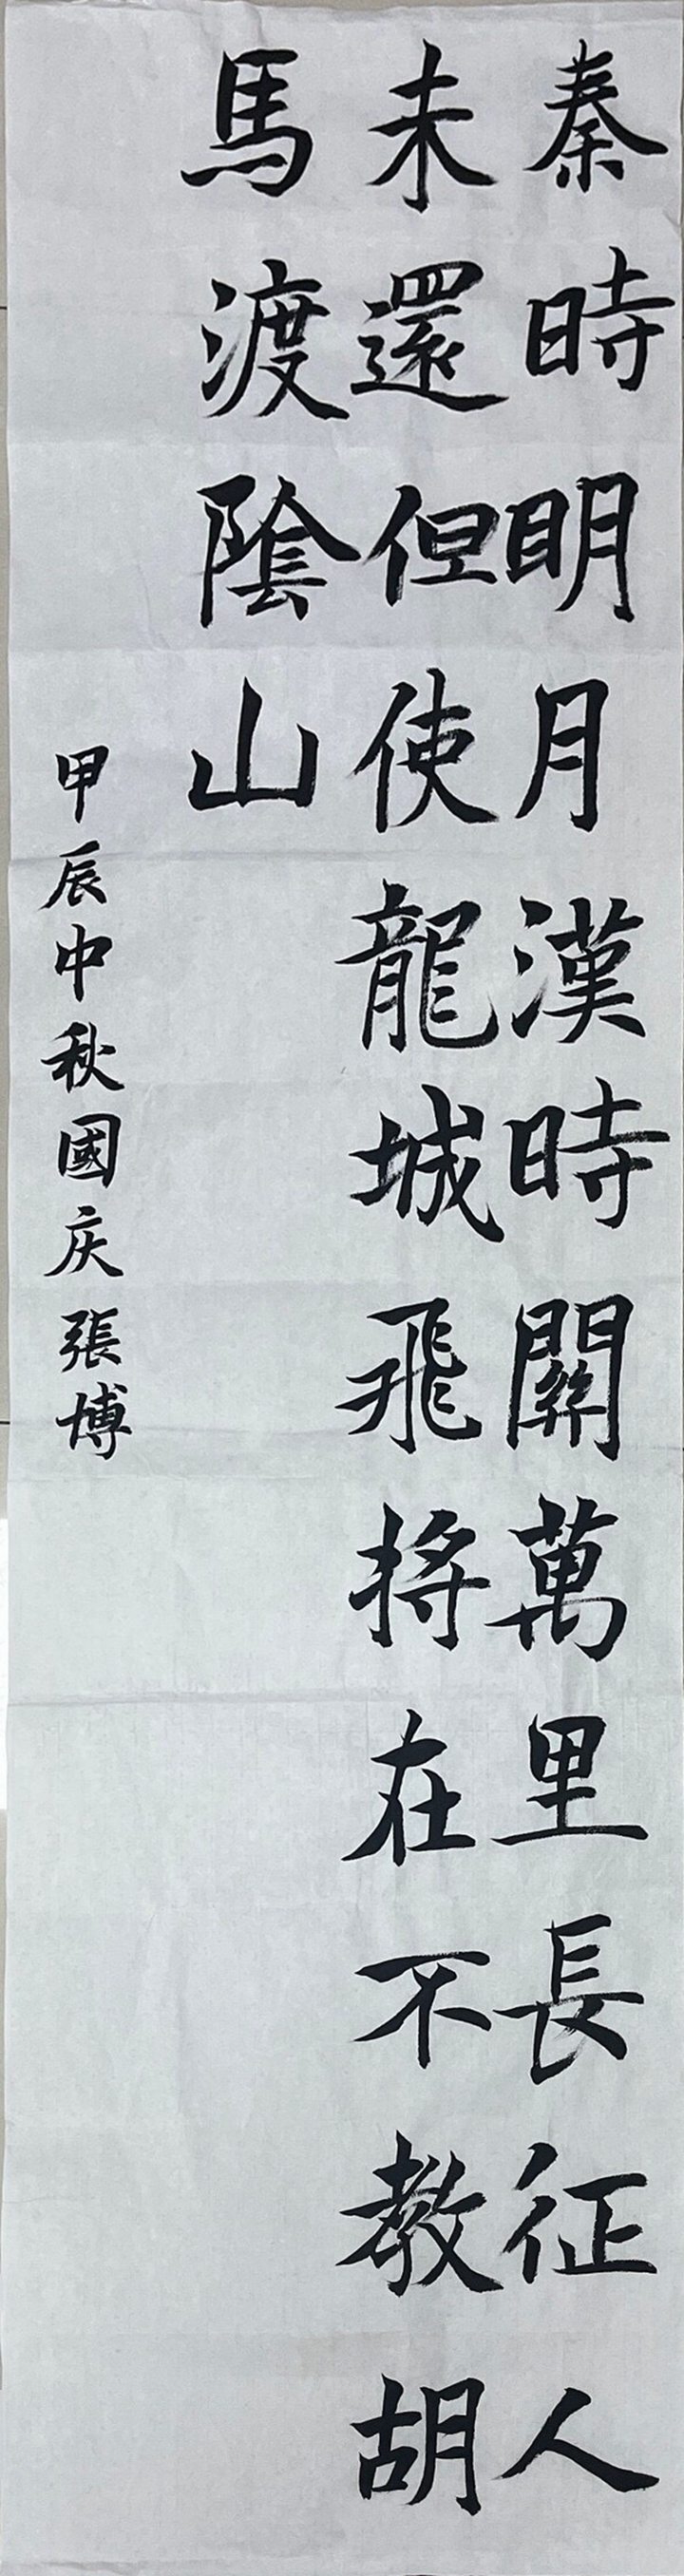 秦時明月漢時關萬里長征人
未還但使龍城飛将在不教胡
馬渡陰山
甲辰中秋國庆張博